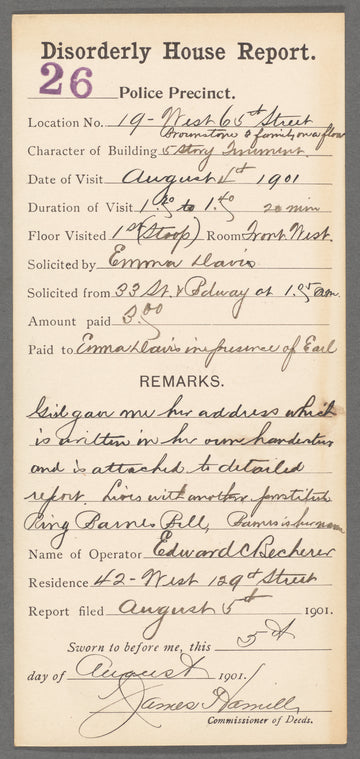 Disorderly House Report.
26 Police Precinct.
Location No. 19 - West 65th Street
Brownstone 2 family on a floor
Character of Building 5 story Tenement
Date of Visit August 4th 1901
Duration of Visit 1.20 to 1.40 20 min
Floor Visited 1st (Stoop) Room Front West.
Solicited by Emma Davis
Solicited from 33 St. & Bdway at 1.05 am.
Amount paid 3.00
Paid to Emma Davis in presence of Earl
REMARKS.
Girl gave me her address which
is written in her own handwriting
and is attached to detailed
report. Lives with another prostitute
Ring Barnes Bell, Barnes is her name
Name of Operator Edward C Becherer
Residence 42 - West 129th Street
Report filed August 5th 1901.
Sworn to before me, this 5th
day of August 1901.
James Hamill
Commissioner of Deeds.